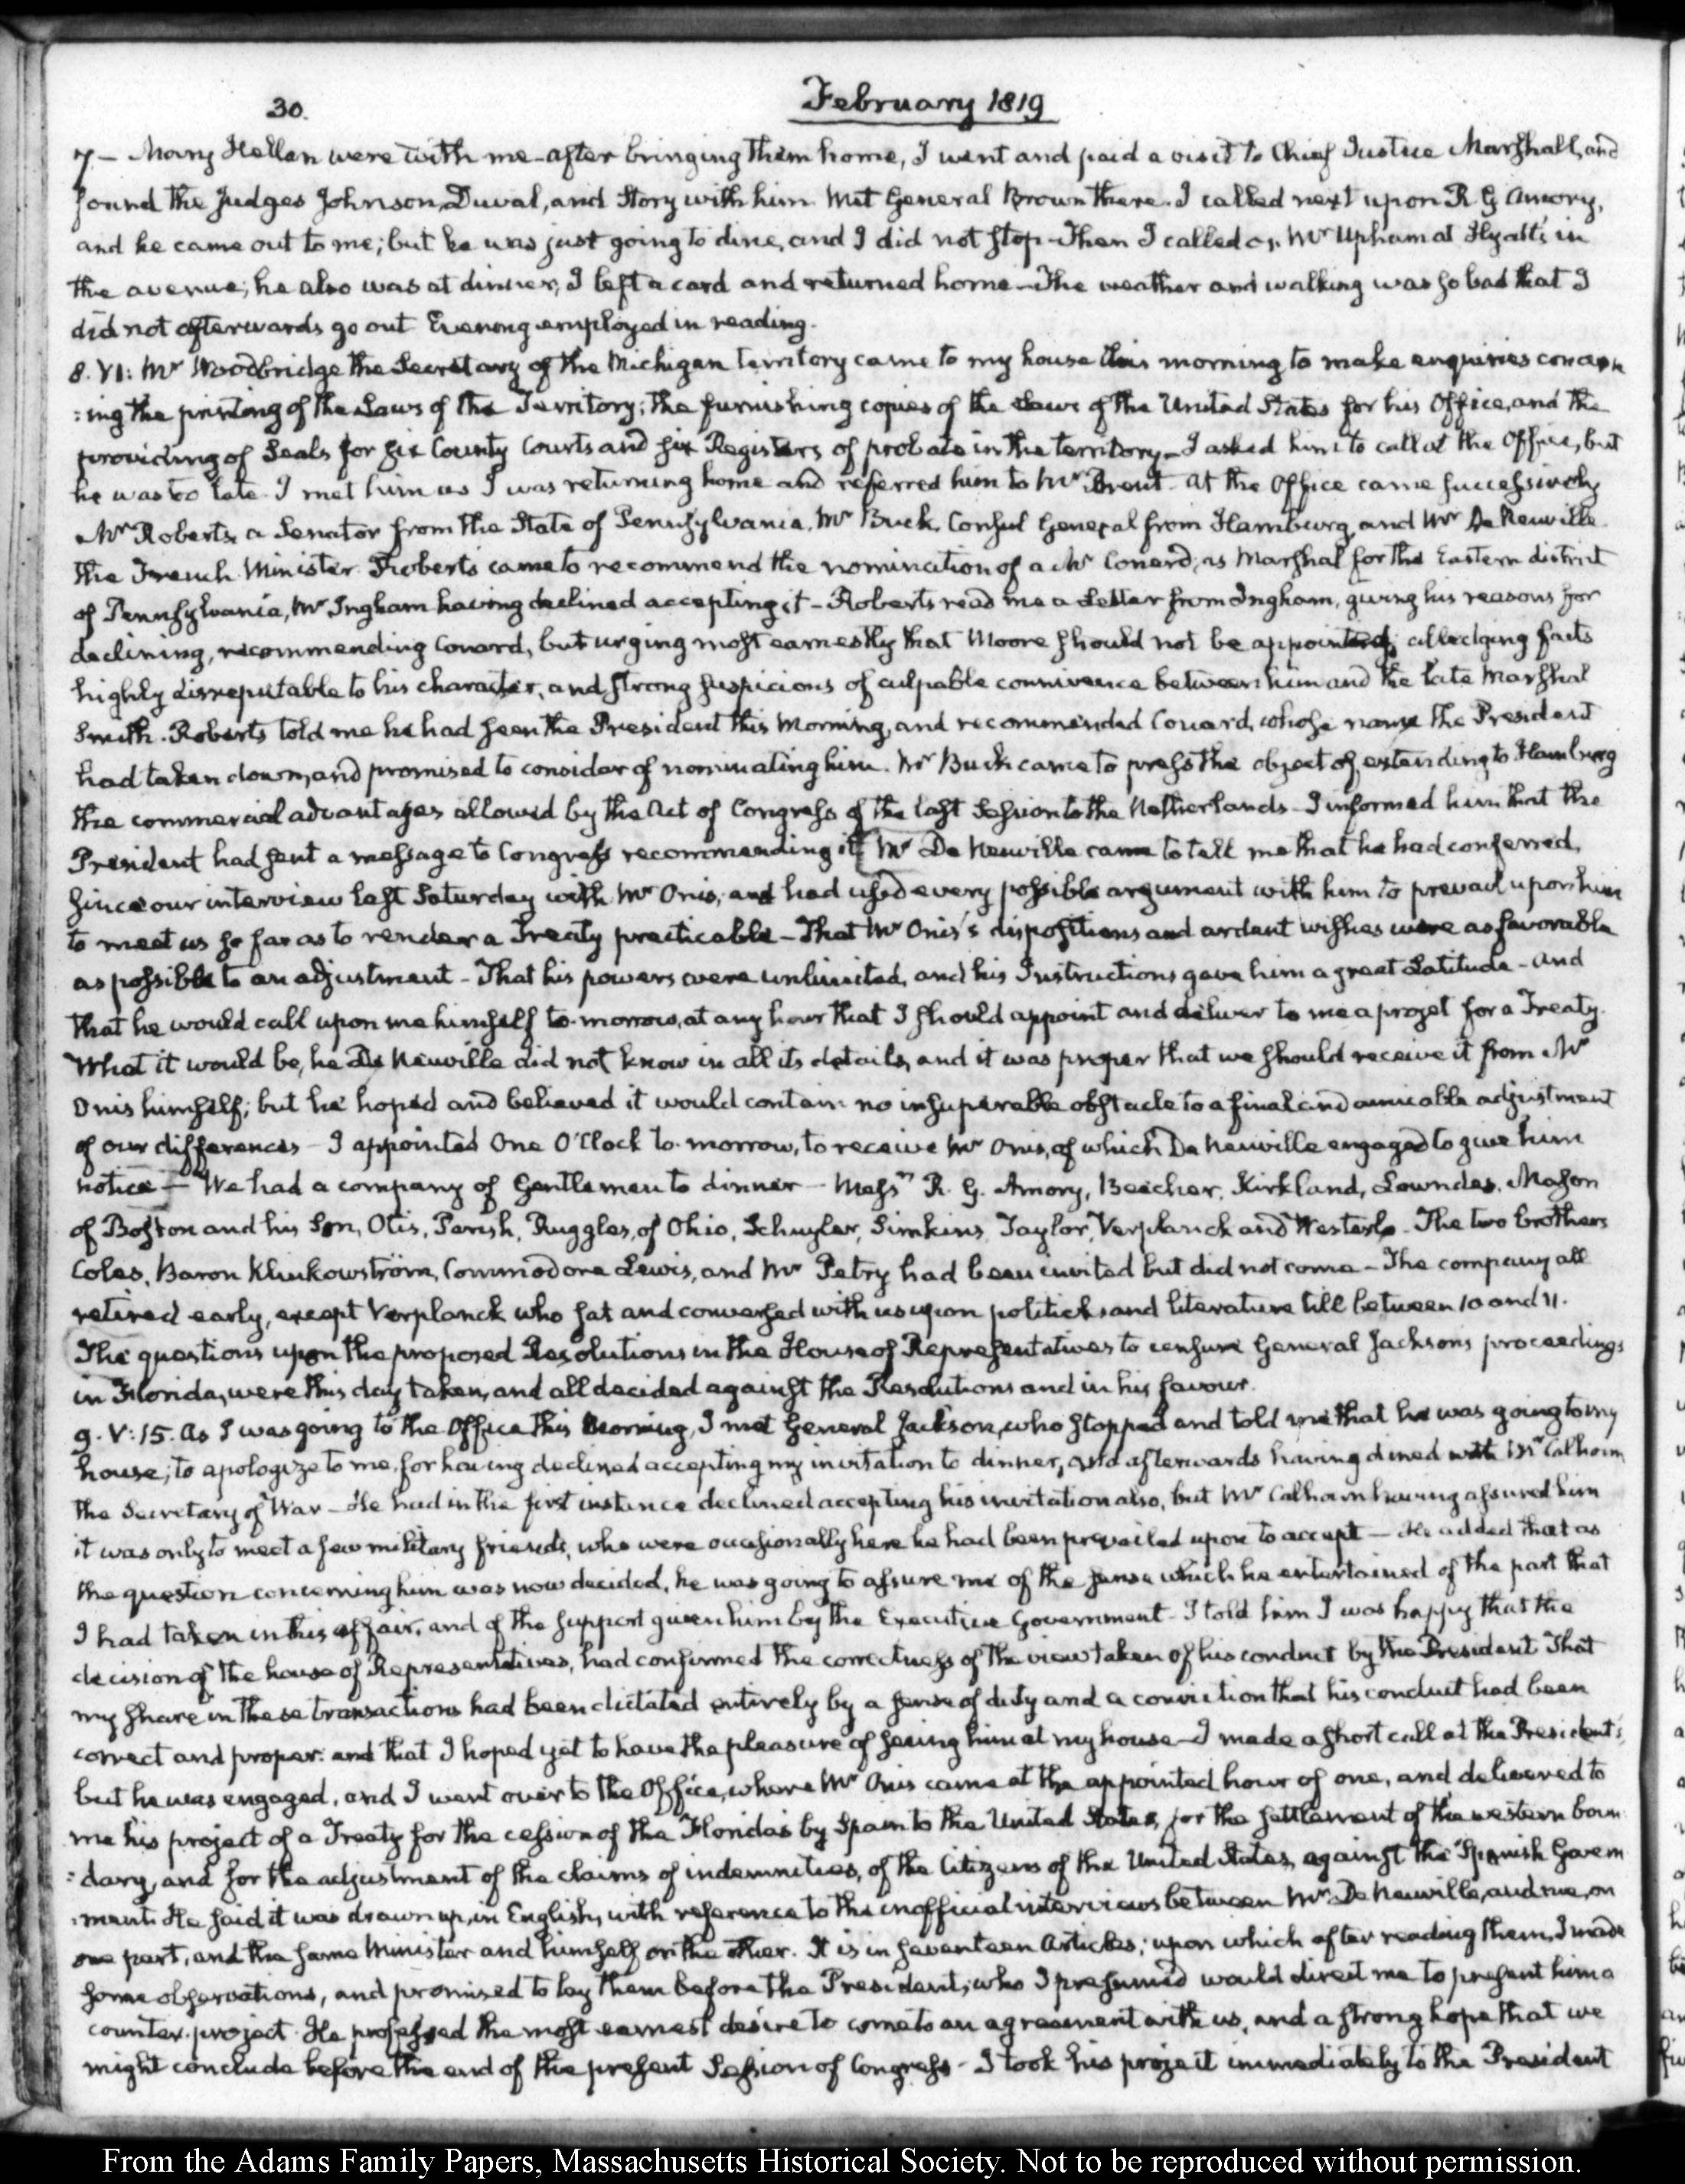 30.
February 1819
7 — Mary Hellen were with me – after bringing them home, I went and paid a visit to Chief Justice Marshall, and
found the Judges Johnson, Duval, and Story with him. Met General Brown there. I called next upon R. G. Amory,
and he came out to me; but he was just going to dine, and I did not stop – Then I called on Mr Upham at Hyatt's in
the avenue; he also was at dinner, I left a card and returned home – The weather and walking was so bad that I
did not afterwards go out. Evening employed in reading.
8. VI: Mr Woodbridge the Secretary of the Michigan territory came to my house this morning to make enquiries concern
:ing the printing of the Laws of the Territory; the furnishing copies of the Laws of the United States for his Office, and the
providing of Seals for six County Courts and six Registers of probate in the territory – I asked him to call at the Office, but
he was too late. I met him as I was returning home and referred him to Mr Brent. At the Office came successively
Mr Roberts, a Senator from the State of Pennsylvania, Mr Buck, Consul General from Hamburg, and Mr De Neuville
the French Minister. Roberts came to recommend the nomination of a Mr Conard, as Marshal for the Eastern district
of Pennsylvania, Mr Ingham having declined accepting it – Roberts read me a Letter from Ingham, giving his reasons for
declining, recommending Conard, but urging most earnestly that Moore should not be appointed; alledging facts
highly disreputable to his character, and strong suspicions of culpable connivence between him and the late Marshal
Smith. Roberts told me he had seen the President this Morning, and recommended Conard, whose name the President
had taken down, and promised to consider of nominating him. Mr Buck came to press the object of extending to Hamburg
the commercial advantages allowed by the Act of Congress of the last Session to the Netherlands – I informed him that the
President had sent a message to Congress recommending it. Mr De Neuville came to tell me that he had conferred,
since our interview last Saturday with Mr Onis, and had used every possible argument with him to prevail upon him
to meet us so far as to render a Treaty practicable – That Mr Onis's dispositions and ardent wishes were as favorable
as possible to an adjustment – That his powers were unlimited, and his Instructions gave him a great Latitude – and
that he would call upon me himself to-morrow, at any hour that I should appoint and deliver to me a projet for a Treaty.
What it would be, he De Neuville did not know in all its details, and it was proper that we should receive it from Mr
Onis himself; but he hoped and believed it would contain no insuperable obstacle to a final and amicable adjustment
of our differences – I appointed One O'Clock to-morrow, to receive Mr Onis, of which De Neuville engaged to give him
notice — We had a company of Gentlemen to dinner – Messrs R. G. Amory, Beecher, Kirkland, Lowndes, Mason
of Boston and his Son, Otis, Parish, Ruggles, of Ohio, Schuyler, Simkins, Taylor, Verplanck and Westerlo. The two brothers
Coles, Baron Klinkowström, Commodore Lewis, and Mr Petry had been invited but did not come – The company all
retired early, except Verplanck who sat and conversed with us upon politics and literature till between 10 and 11.
The questions upon the proposed Resolutions in the House of Representatives to censure General Jacksons proceedings
in Florida, were this day taken, and all decided against the Resolutions and in his favour.
9. V:15. As I was going to the Office this Morning, I met General Jackson, who stopped and told me that he was going to my
house; to apologize to me, for having declined accepting my invitation to dinner, and afterwards having dined with Mr Calhoun
the Secretary of War – He had in the first instance declined accepting his invitation also, but Mr Calhoun having assured him
it was only to meet a few military friends, who were occasionally here he had been prevailed upon to accept — He added that as
the question concerning him was now decided, he was going to assure me of the sense which he entertained of the part that
I had taken in this affair, and of the support given him by the Executive Government – I told him I was happy that the
decision of the house of Representatives, had confirmed the correctness of the view taken of his conduct by the President. That
my share in these transactions had been dictated entirely by a sense of duty and a conviction that his conduct had been
correct and proper: and that I hoped yet to have the pleasure of seeing him at my house – I made a short call at the President's,
but he was engaged, and I went over to the Office, where Mr Onis came at the appointed hour of one, and delivered to
me his project of a Treaty for the cession of the Floridas by Spain to the United States, for the settlement of the western boun
:dary, and for the adjustment of the claims of indemnities, of the Citizens of the United States, against the Spanish Govern
:ment. He said it was drawn up, in English, with reference to the inofficial interviews between Mr De Neuville, and me, on
one part, and the same Minister and himself on the other. It is in seventeen Articles; upon which after reading them, I made
some observations, and promised to lay them before the President, who I presumed would direct me to present him a
counter-project. He professed the most earnest desire to come to an agreement with us, and a strong hope that we
might conclude before the end of the present Session of Congress – I took his project immediately to the President
From the Adams Family Papers, Massachusetts Historical Society. Not to be reproduced without permission.